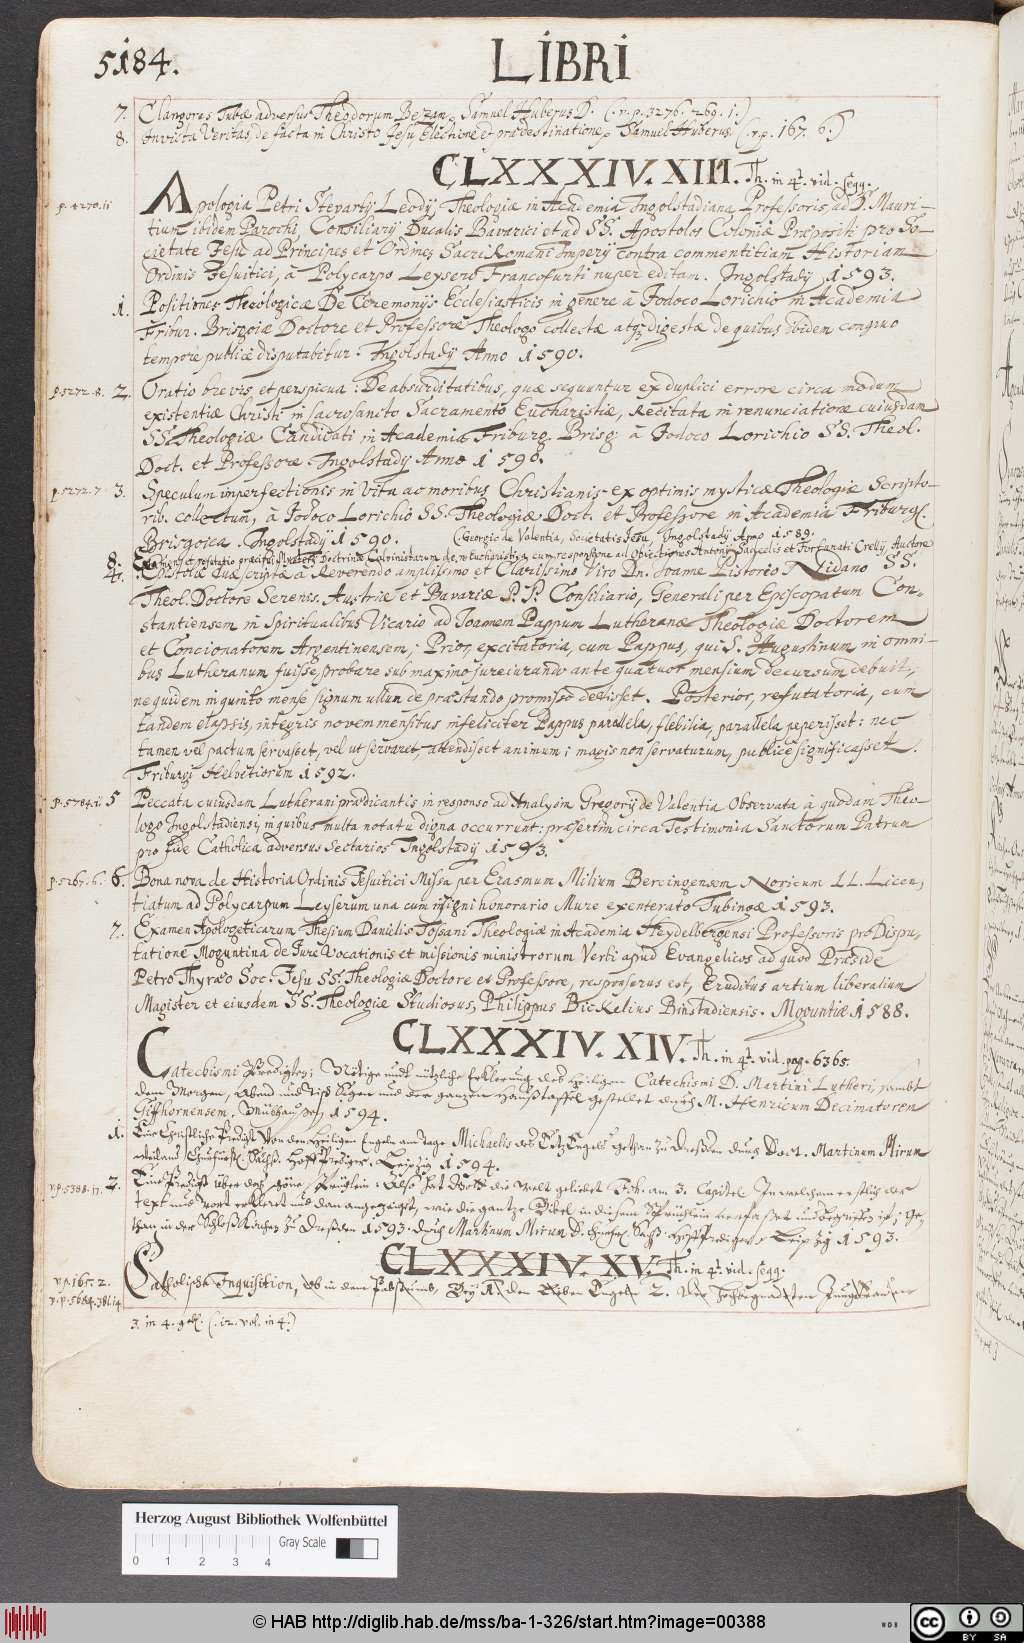 5184.
LIBRI
7. Clangores Tubæ adversus Theodorum Bezam, Samuel Huberus D. (v. p. 3276. 269. 1.)
8. Invicta Veritas, de facta in Christo Jesu, Electione et prædestinatione, Samuel Huberus (v. p. 167. 6.)
CLXXXIV. XIII. Th. in 4t. vid. seqq.
p. 4270. 11 Apologia Petri Stevarty Leody, Theologiæ in Academia Ingolstadiana Professoris, ad D. Mauri-
tium ibidem Parochi, Consiliary Ducalis Bavarici et ad SS. Apostolos Coloniæ Præpositi pro So-
cietate Jesu ad Principes et Ordines Sacri Romani Impery contra commentitiam Historiam
Ordinis Jesuitici, à Polycarpo Leysero Francofurti nuper editam. Ingolstady, 1593.
1. Positiones Theologicæ De Ceremonys Ecclesiasticis in genere à Jodoco Lorichio in Academia
Fribur. Brisgoiæ Doctore et Professore Theologo collectæ atq; digestæ de quibus ibidem congruo
tempore publicè disputabitur. Ingolstady Anno 1590.
p. 5272. 8. 2. Oratio brevis et perspicua: De absurditatibus, quæ sequuntur ex duplici errore circa modum
existentiæ Christi in sacrosancto Sacramento Eucharistiæ, Recitata in renunciatione cuiusdam
SS. Theologiæ Candidati in Academia Friburg. Brisg. à Jodoco Lorichio SS. Theol.
Doct. et Professore. Ingolstady Anno 1590.
p. 5272. 7 3. Speculum inperfectionis in vita ac moribus Christianis ex optimis mysticæ Theologiæ Scripto-
rib. collectum, à Jodoco Lorichio SS. Theologiæ Doct. et Professore in Academia Friburg.
Brisgoica. Ingolstady 1590. (Georgio de Valentia, Societatis Jesu, Ingolstady Anno 1589.
8. Examen et refutatio præcipui Mystery Doctrinæ Calvinistarum de re Eucharistica cum responsione ad Objectiones Antony Sadeelis et Fortunati Crelly, Auctore
4. Epistolæ Duæ scriptæ à Reverendo amplissimo et Clarissimo Viro Dn. Joanne Pistorio Nidano SS.
Theol. Doctore Sereniss. Austriæ et Bavariæ P. P. Consiliario, Generali per Episcopatum Con-
stantiensem in Spiritualibus Vicario ad Joannem Pappum Lutheranæ Theologiæ Doctorem
et Concionatorem Argentinensem; Prior, excitatoria, cum Pappus, qui S. Augustinum in omni-
bus Lutheranum fuisse, probare sub maximo jurejurando ante quatuor mensium decursum debuit,
nequidem in quinto mense signum ullum de præstando promisso dedisset. Posterior, refutatoria, cum
tandem elapsis, integris novem mensibus infeliciter Pappus parallela, flebilia, parallela peperisset: nec
tamen vel pactum servasset, vel ut servaret, attendisset animum; magis non servaturum, publicè significasset.
Friburgi Helvetiorum 1592.
p. 5784. 11 5 Peccata cuiusdam Lutherani prædicantis in responso ad Analysin Gregory de Valentia Observata à quodam Theo-
logo Ingolstadiensi, in quibus multa notatu digna occurrunt: præsertim circa Testimonia Sanctorum Patrum
pro fide Catholica adversus Sectarios Ingolstady 1593.
p. 5267. 6. 6. Bona nova de Historia Ordinis Jesuitici Missa per Erasmum Milium Bercingensem Noricum LL. Licen-
tiatum ad Polycarpum Leyserum una cum insigni honorario Mure exenterato Tubingæ 1593.
7. Examen Apologeticarum Thesium Danielis Tossani Theologiæ in Academia Heydelbergensi Professoris pro Dispu-
tatione Moguntina de Jure Vocationis et missionis ministrorum Verbi apud Evangelicos ad quod Præside
Petro Thyræo Soc. Jesu SS. Theologiæ Doctore et Professore, responsurus est, Eruditus artium liberalium
Magister et eiusdem SS. Theologiæ Studiosus, Philippus Bickelius Binstadiensis. Moguntiæ 1588.
CLXXXIV. XIV. Th. in 4t. vid. pag. 6365.
Catechismi Predigten; Nötige undt nützliche Erklerung des heiligen Catechismi D. Martini Lutheri, sambt
dem Morgen, Abend und Tisch Segen und der ganzen Haußtaffel gestellet durch M. Henricum Decimatorem
Giffhornensem. Mülhausen, 1594.
1. Eine Christliche Predigt Von den Heiligen Engeln am tage Michaelis des Ertz Engels gethan zu Dreßden durch Doct. Martinum Mirum
weiland Churfürstl. Sächß. Hoff Prediger. Leipzig 1594.
v. p. 5388. 17. 2. Eine Predigt über das schöne Sprüchlein: Also hat Gott die welt geliebet Joh. am 3. Capitel. In welchem erstlich der
text und wort erkleret und dan angezeigt, wie die gantze Bibel in diesem Sprüchlein verfasset und begriffen ist; Ge-
than in der Schloß Kirchen zu Dreßden 1593. durch Martinum Mirum D. Churf. Sächß. Hoff Predigern. Leipzig 1593.
CLXXXIV. XV. Th. in 4t. vid. seqq.
v. p. 165. 2.
v. p. 5684. 381. 14 Catholische Inquisition, Ob in dem Pabstumb, Bey 1. den Lieben Engeln 2. der hochbegnadeten Jungfrauen
3 in 4. geb. (. 12. vol. in 4.)
Herzog August Bibliothek Wolfenbüttel
Gray Scale
0 1 2 3 4
© HAB http://diglib.hab.de/mss/ba-1-326/start.htm?image=00388
WDB
cc BY SA